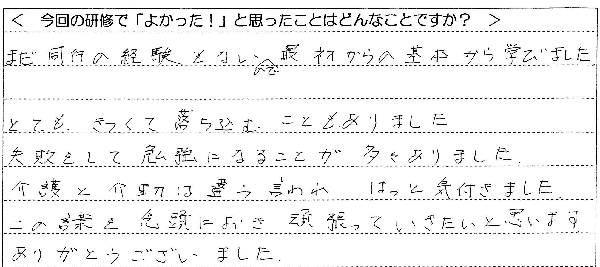 ＜ 今回の研修で「よかった！」と思ったことはどんなことですか？ ＞
まだ同行の経験もない からの基本から学びました
ので
とても きつくて 落ち込む こともありました
失敗をして 勉強になることが 多々ありました
介護と介助は違う 言われ はっと気付きました
この言葉を念頭におき 頑張っていきたいと思います
ありがとうございました